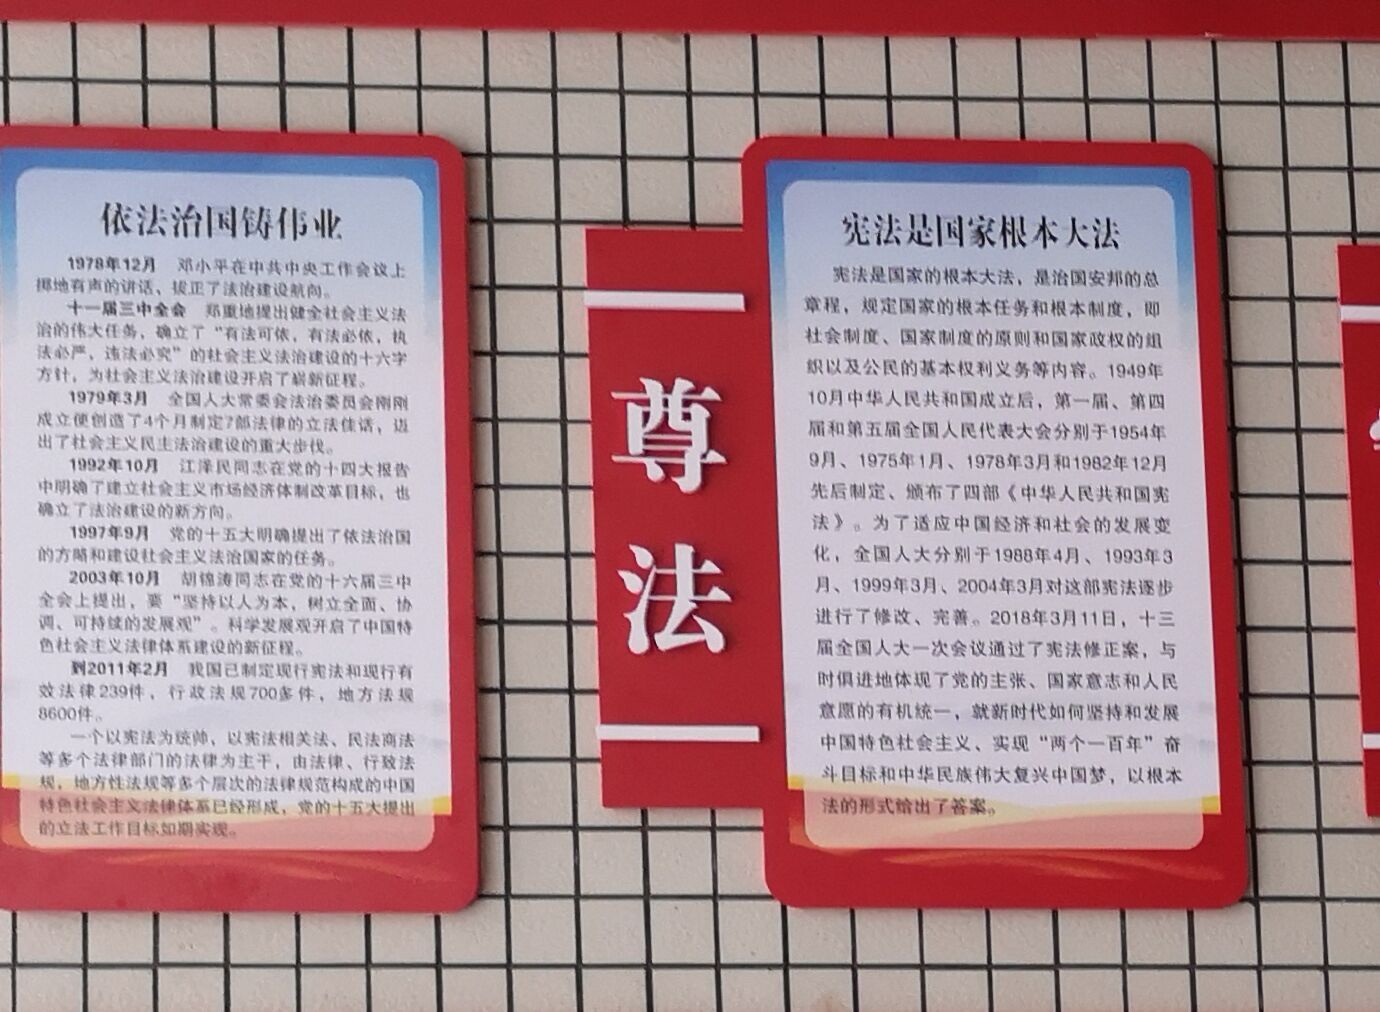 依法治国铸伟业
1978年12月 邓小平在中共中央工作会议上
掷地有声的讲话，拔正了法治建设航向。
十一届三中全会 郑重地提出健全社会主义法
治的伟大任务，确立了“有法可依，有法必依，执
法必严，违法必究”的社会主义法治建设的十六字
方针，为社会主义法治建设开启了崭新征程。
1979年3月 全国人大常委会法治委员会刚刚
成立便创造了4个月制定7部法律的立法佳话，迈
出了社会主义民主法治建设的重大步伐。
1992年10月 江泽民同志在党的十四大报告
中明确了建立社会主义市场经济体制改革目标，也
确立了法治建设的新方向。
1997年9月 党的十五大明确提出了依法治国
的方略和建设社会主义法治国家的任务。
2003年10月 胡锦涛同志在党的十六届三中
全会上提出，要“坚持以人为本，树立全面、协
调、可持续的发展观”。科学发展观开启了中国特
色社会主义法律体系建设的新征程。
到2011年2月 我国已制定现行宪法和现行有
效法律239件，行政法规700多件，地方法规
8600件。
一个以宪法为统帅，以宪法相关法、民法商法
等多个法律部门的法律为主干，由法律、行政法
规，地方性法规等多个层次的法律规范构成的中国
特色社会主义法律体系已经形成，党的十五大提出
的立法工作目标如期实现。
尊
法
宪法是国家根本大法
宪法是国家的根本大法，是治国安邦的总
章程，规定国家的根本任务和根本制度，即
社会制度、国家制度的原则和国家政权的组
织以及公民的基本权利义务等内容。1949年
10月中华人民共和国成立后，第一届、第四
届和第五届全国人民代表大会分别于1954年
9月、1975年1月、1978年3月和1982年12月
先后制定、颁布了四部《中华人民共和国宪
法》。为了适应中国经济和社会的发展变
化，全国人大分别于1988年4月、1993年3
月、1999年3月、2004年3月对这部宪法逐步
进行了修改、完善。2018年3月11日，十三
届全国人大一次会议通过了宪法修正案，与
时俱进地体现了党的主张、国家意志和人民
意愿的有机统一，就新时代如何坚持和发展
中国特色社会主义、实现“两个一百年”奋
斗目标和中华民族伟大复兴中国梦，以根本
法的形式给出了答案。